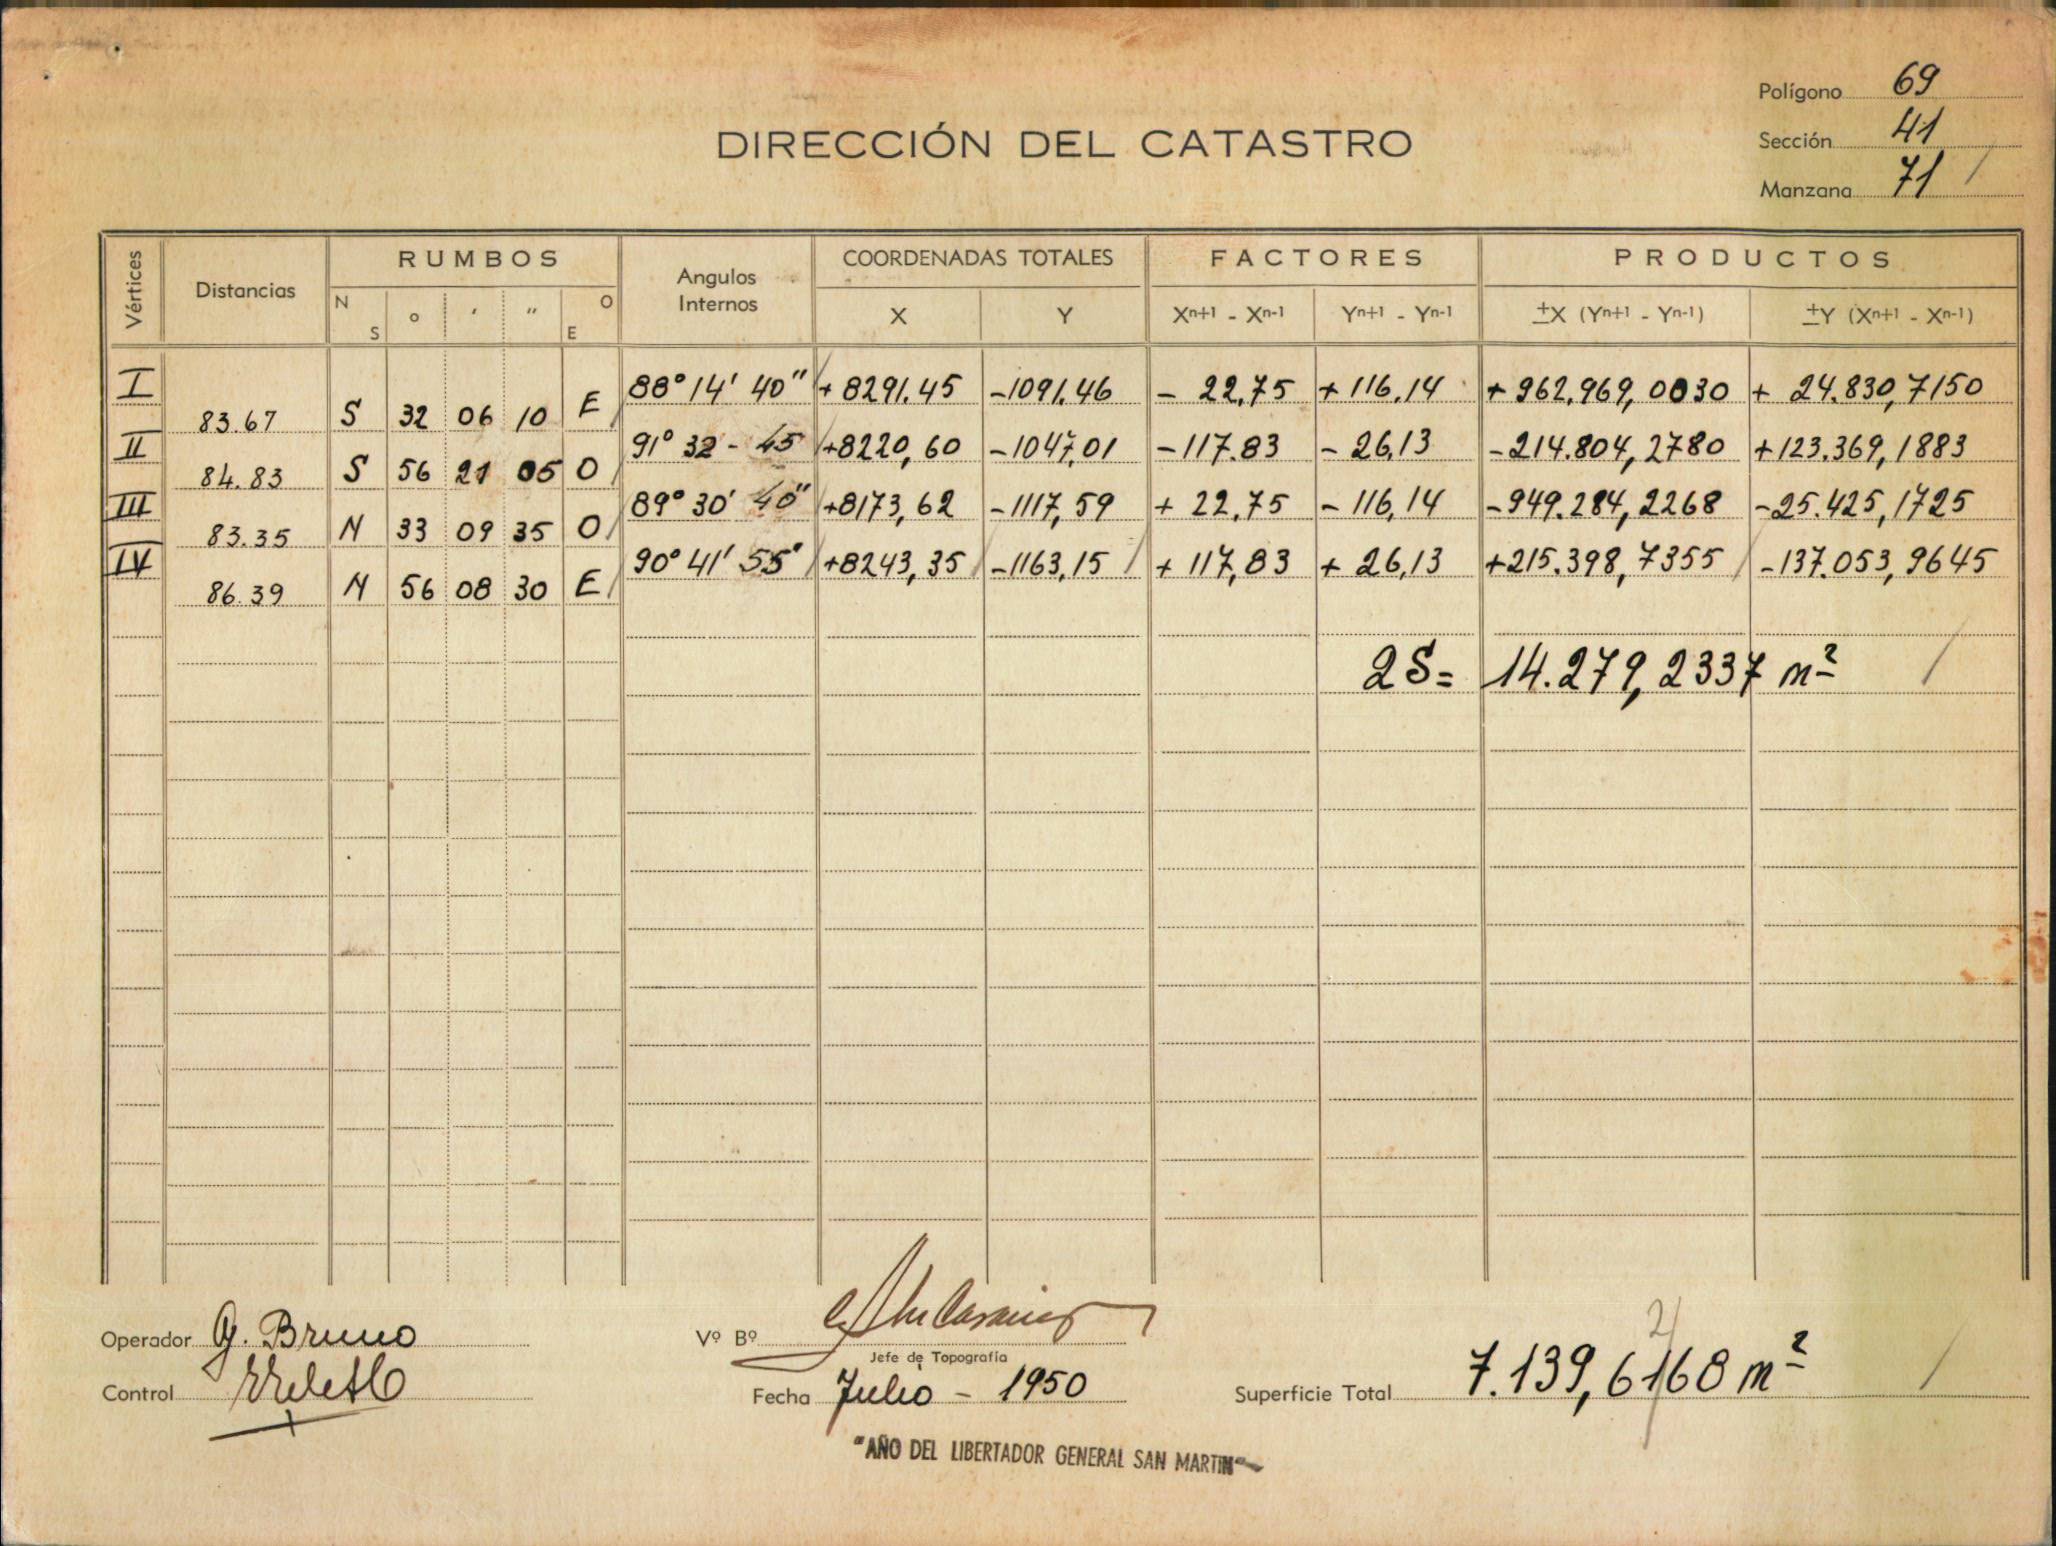 Polígono 69
DIRECCIÓN DEL CATASTRO
Sección 41
Manzana 71
Vértices Distancias RUMBOS Angulos Internos COORDENADAS TOTALES FACTORES PRODUCTOS
N S ° ′ ″ O E X Y Xⁿ⁺¹ - Xⁿ⁻¹ Yⁿ⁺¹ - Yⁿ⁻¹ ±X (Yⁿ⁺¹ - Yⁿ⁻¹) ±Y (Xⁿ⁺¹ - Xⁿ⁻¹)
I 88° 14' 40" + 8291.45 -1091.46 - 22,75 + 116,14 + 962.969,0030 + 24.830,7150
83.67 S 32 06 10 E
II 91° 32 - 45 +8220,60 -1047,01 -117.83 - 26,13 -214.804,2780 +123.369,1883
84.83 S 56 21 05 O
III 89° 30' 40" +8173,62 -1117,59 + 22,75 - 116,14 -949.284,2268 -25.425,1725
83.35 N 33 09 35 O
IV 90° 41' 55" +8243,35 -1163,15 + 117,83 + 26,13 +215.398,7355 -137.053,9645
86.39 N 56 08 30 E
2S= 14.279,2337 m²
Operador G. Bruno
Vº Bº
Jefe de Topografía
Control
Fecha Julio - 1950
Superficie Total 7.139,6168 m²
"AÑO DEL LIBERTADOR GENERAL SAN MARTIN"